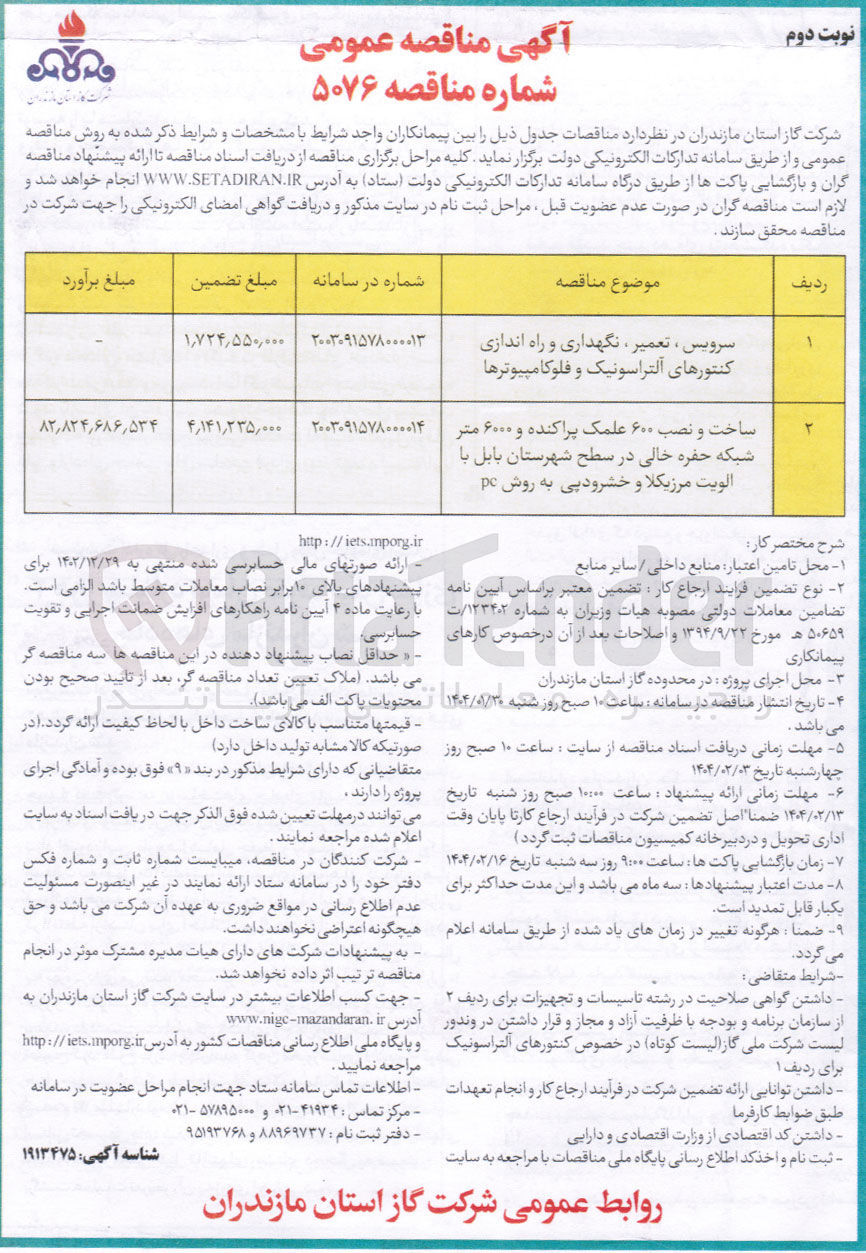 نوبت دوم
آگهی مناقصه عمومی
شماره مناقصه ۵۰۷۶
شرکت گاز استان مازندران
شرکت گاز استان مازندران در نظردارد مناقصات جدول ذیل را بین پیمانکاران واجد شرایط با مشخصات و شرایط ذکر شده به روش مناقصه
عمومی و از طریق سامانه تدارکات الکترونیکی دولت برگزار نماید. کلیه مراحل برگزاری مناقصه از دریافت اسناد مناقصه تا ارائه پیشنهاد مناقصه
گران و بازگشایی پاکت ها از طریق درگاه سامانه تدارکات الکترونیکی دولت (ستاد) به آدرس WWW.SETADIRAN.IR انجام خواهد شد و
لازم است مناقصه گران در صورت عدم عضویت قبل ، مراحل ثبت نام در سایت مذکور و دریافت گواهی امضای الکترونیکی را جهت شرکت در
مناقصه محقق سازند .
ردیف موضوع مناقصه شماره در سامانه مبلغ تضمین مبلغ برآورد
۱ سرویس ، تعمیر ، نگهداری و راه اندازی ۲۰۰۳۰۹۱۵۷۸۰۰۰۰۱۳ ۱,۷۲۴,۵۵۰,۰۰۰ -
کنتورهای آلتراسونیک و فلوکامپیوترها
۲ ساخت و نصب ۶۰۰ علمک پراکنده و ۶۰۰۰ متر ۲۰۰۳۰۹۱۵۷۸۰۰۰۰۱۴ ۴,۱۴۱,۲۳۵,۰۰۰ ۸۲,۸۲۴,۶۸۶,۵۳۴
شبکه حفره خالی در سطح شهرستان بابل با
الویت مرزیکلا و خشرودپی به روش pc
شرح مختصر کار :
۱- محل تامین اعتبار: منابع داخلی / سایر منابع
۲- نوع تضمین فرایند ارجاع کار : تضمین معتبر براساس آیین نامه
تضامین معاملات دولتی مصوبه هیات وزیران به شماره ۱۲۳۴۰۲/ت
۵۰۶۵۹ هـ مورخ ۱۳۹۴/۹/۲۲ و اصلاحات بعد از آن درخصوص کارهای
پیمانکاری
۳- محل اجرای پروژه : در محدوده گاز استان مازندران
۴- تاریخ انتشار مناقصه در سامانه : ساعت ۱۰ صبح روز شنبه ۱۴۰۴/۰۱/۳۰
می باشد .
۵- مهلت زمانی دریافت اسناد مناقصه از سایت : ساعت ۱۰ صبح روز
چهارشنبه تاریخ ۱۴۰۴/۰۲/۰۳
۶- مهلت زمانی ارائه پیشنهاد : ساعت ۱۰:۰۰ صبح روز شنبه تاریخ
۱۴۰۴/۰۲/۱۳ ضمنا"اصل تضمین شرکت در فرآیند ارجاع کارتا پایان وقت
اداری تحویل و دردبیرخانه کمیسیون مناقصات ثبت گردد )
۷- زمان بازگشایی پاکت ها : ساعت ۹:۰۰ روز سه شنبه تاریخ ۱۴۰۴/۰۲/۱۶
۸- مدت اعتبار پیشنهادها : سه ماه می باشد و این مدت حداکثر برای
یکبار قابل تمدید است.
۹- ضمنا : هرگونه تغییر در زمان های یاد شده از طریق سامانه اعلام
می گردد.
-شرایط متقاضی :
- داشتن گواهی صلاحیت در رشته تاسیسات و تجهیزات برای ردیف ۲
از سازمان برنامه و بودجه با ظرفیت آزاد و مجاز و قرار داشتن در وندور
لیست شرکت ملی گاز(لیست کوتاه) در خصوص کنتورهای آلتراسونیک
برای ردیف ۱
- داشتن توانایی ارائه تضمین شرکت در فرآیند ارجاع کار و انجام تعهدات
طبق ضوابط کارفرما
- داشتن کد اقتصادی از وزارت اقتصادی و دارایی
- ثبت نام و اخذکد اطلاع رسانی پایگاه ملی مناقصات با مراجعه به سایت
http://iets.mporg.ir
- ارائه صورتهای مالی حسابرسی شده منتهی به ۱۴۰۲/۱۲/۲۹ برای
پیشنهادهای بالای ۱۰برابر نصاب معاملات متوسط باشد الزامی است.
با رعایت ماده ۴ آیین نامه راهکارهای افزایش ضمانت اجرایی و تقویت
حسابرسی.
- « حداقل نصاب پیشنهاد دهنده در این مناقصه ها سه مناقصه گر
می باشد. (ملاک تعیین تعداد مناقصه گر، بعد از تأیید صحیح بودن
محتویات پاکت الف می باشد).
- قیمتها متناسب با کالای ساخت داخل با لحاظ کیفیت ارائه گردد.(در
صورتیکه کالا مشابه تولید داخل دارد)
متقاضیانی که دارای شرایط مذکور در بند « ۹» فوق بوده و آمادگی اجرای
پروژه را دارند ،
می توانند درمهلت تعیین شده فوق الذکر جهت دریافت اسناد به سایت
اعلام شده مراجعه نمایند.
- شرکت کنندگان در مناقصه، میبایست شماره ثابت و شماره فکس
دفتر خود را در سامانه ستاد ارائه نمایند در غیر اینصورت مسئولیت
عدم اطلاع رسانی در مواقع ضروری به عهده آن شرکت می باشد و حق
هیچگونه اعتراضی نخواهند داشت.
- به پیشنهادات شرکت های دارای هیات مدیره مشترک موثر در انجام
مناقصه ترتیب اثر داده نخواهد شد.
- جهت کسب اطلاعات بیشتر در سایت شرکت گاز استان مازندران به
آدرس www.nigc-mazandaran.ir
و پایگاه ملی اطلاع رسانی مناقصات کشور به آدرس http://iets.mporg.ir
مراجعه نمایید .
- اطلاعات تماس سامانه ستاد جهت انجام مراحل عضویت در سامانه
- مرکز تماس : ۴۱۹۳۴-۰۲۱ و ۵۷۸۹۵۰۰۰-۰۲۱
- دفتر ثبت نام : ۸۸۹۶۹۷۳۷ و ۹۵۱۹۳۷۶۸
شناسه آگهی: ۱۹۱۳۴۷۵
روابط عمومی شرکت گاز استان مازندران
AriaTender